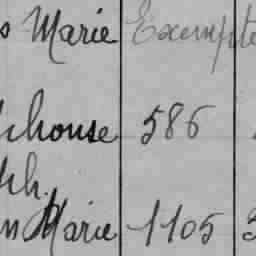 s Marie Exempte
phonse 586
ph.
n Marie 1105 3